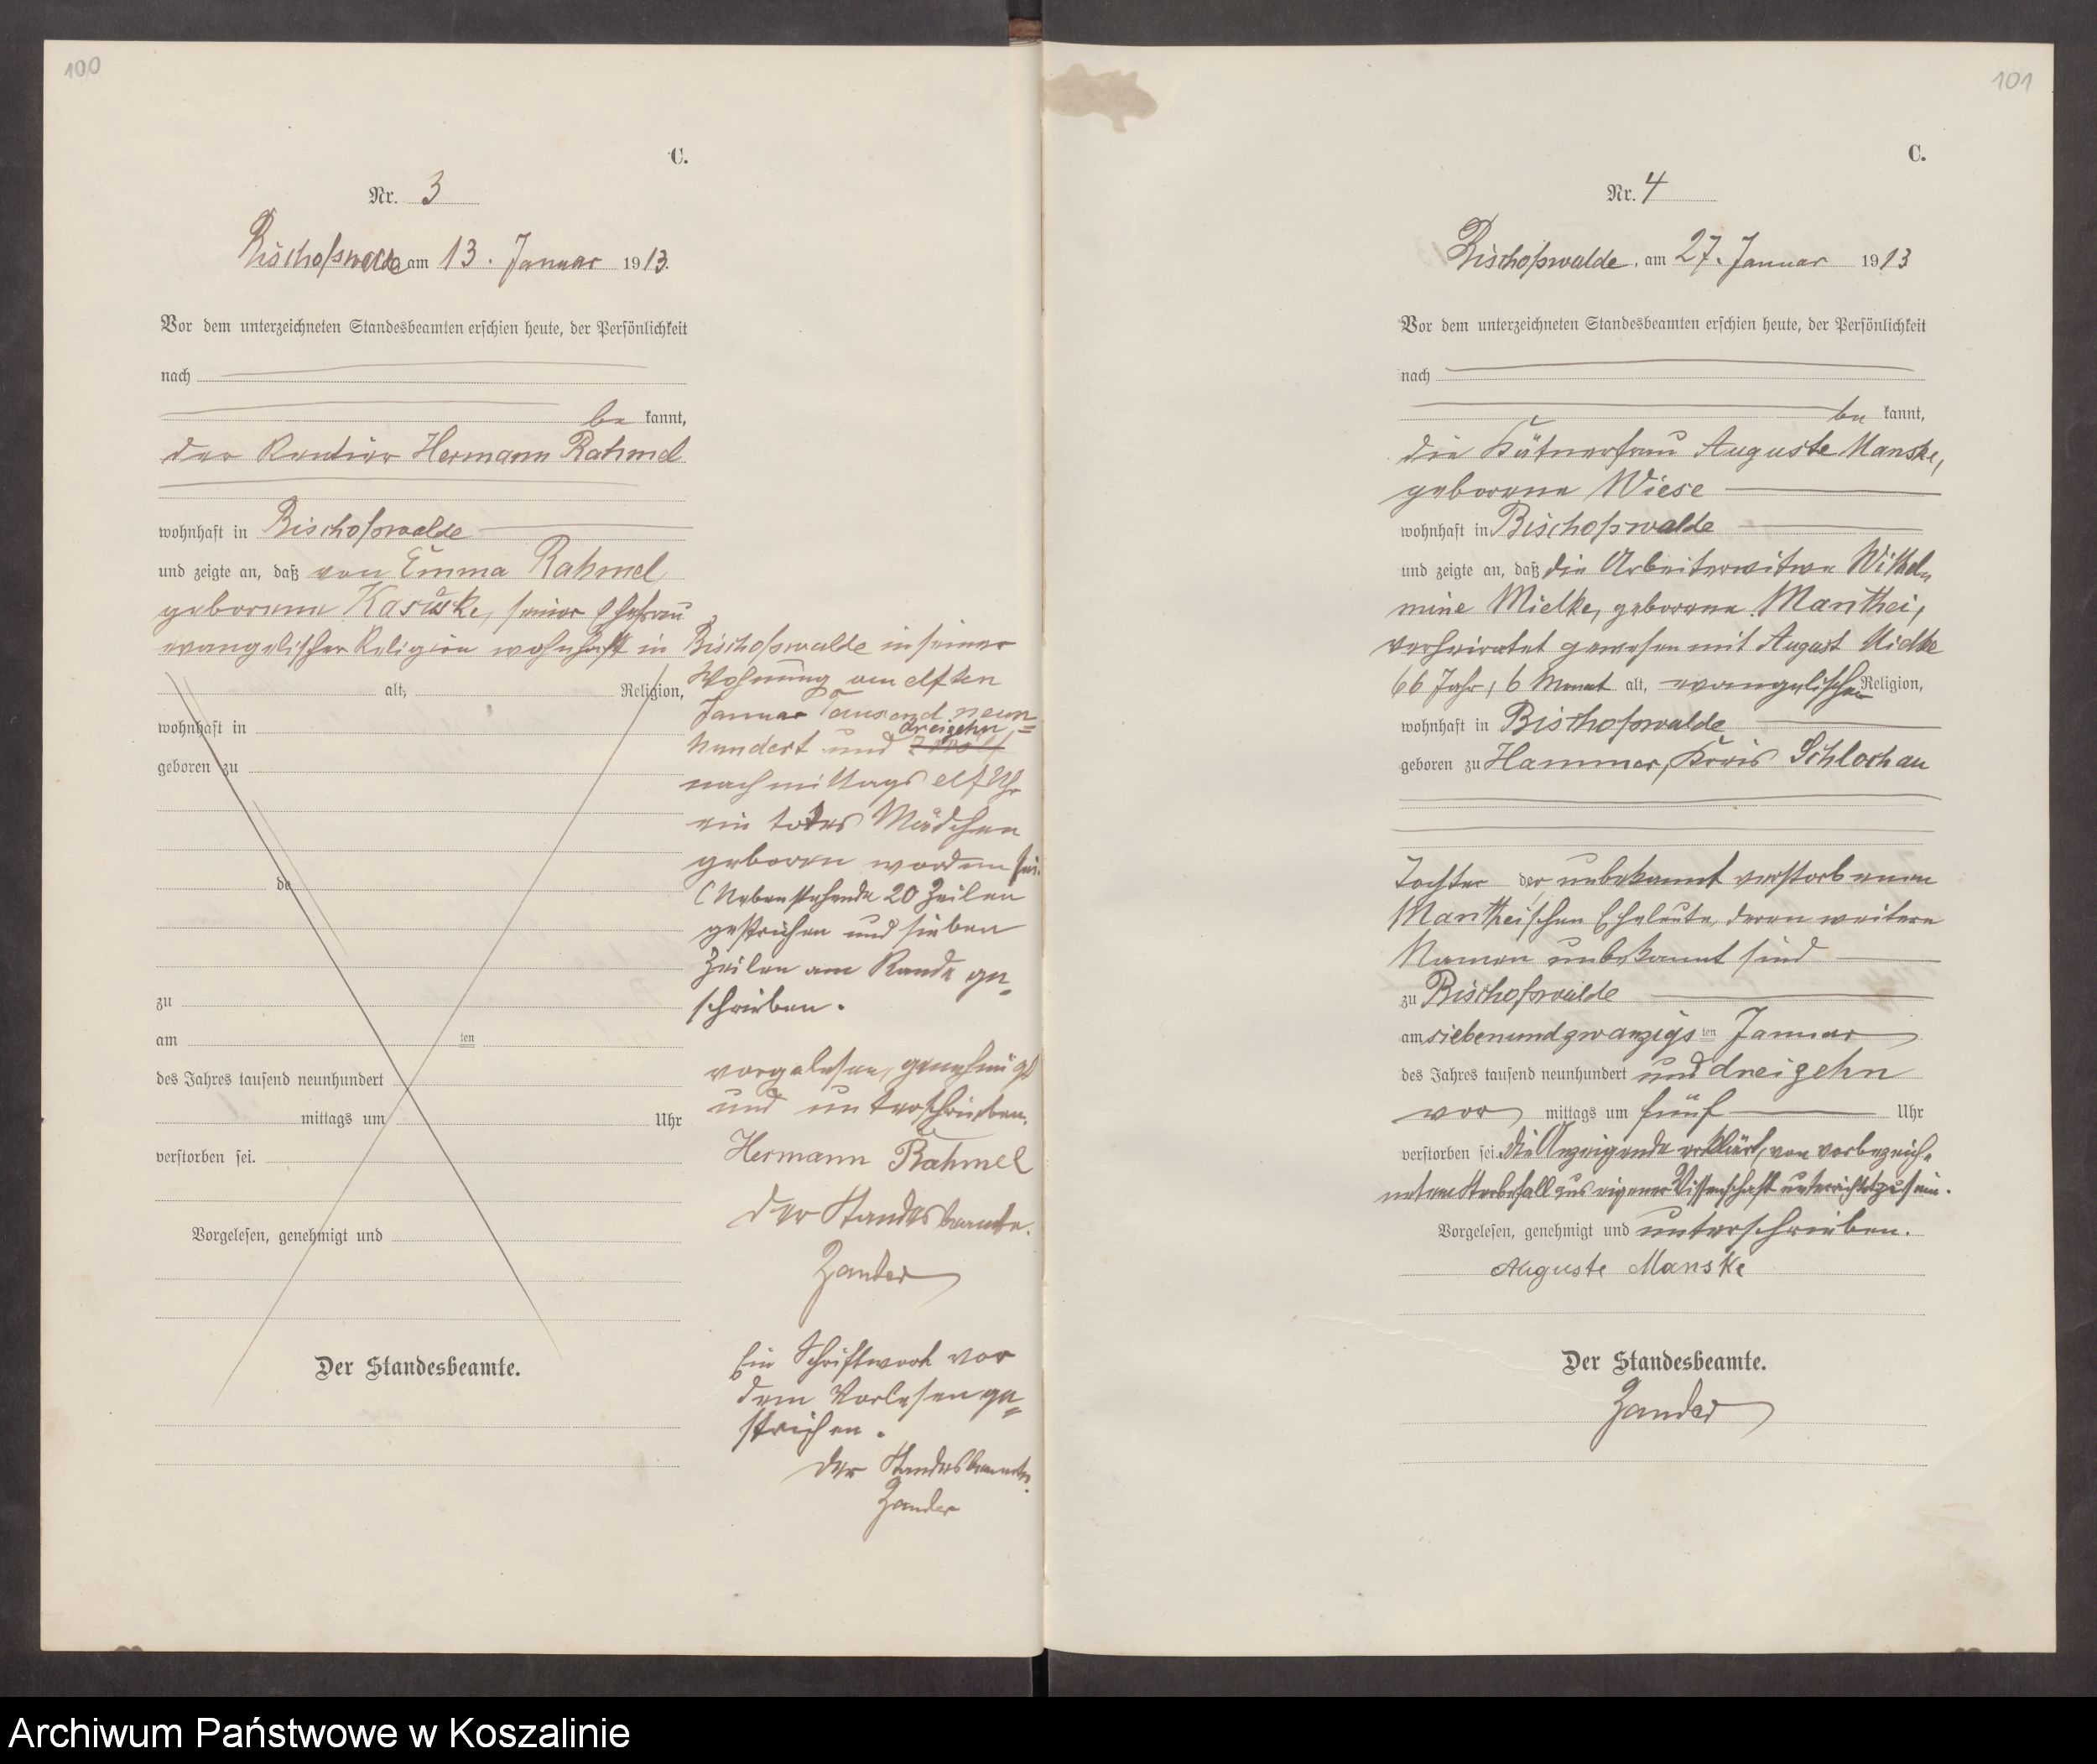 100
C.
Nr. 3
Bischofswalde am 13. Januar 1913.
Vor dem unterzeichneten Standesbeamten erschien heute, der Persönlichkeit
nach
be kannt,
der Rentier Hermann Rahmel
wohnhaft in Bischofswalde
und zeigte an, daß von Emma Rahmel
geborene, seiner Ehefrau
evangelischer Religion wohnhaft in
alt, Religion,
wohnhaft in
geboren zu
de
zu
am ten
des Jahres tausend neunhundert
mittags um Uhr
verstorben sei.
Vorgelesen, genehmigt und
Der Standesbeamte.
Bischofswalde in seiner
Wohnung am elften
Januar Tausend neun=
dreizehn
hundert und zwölf
nachmittags elf Uhr
ein totes Mädchen
geboren worden sei.
(Nebenstehende 20 Zeilen
gestrichen und sieben
Zeilen am Rande ge=
schrieben.
vorgelesen, genehmigt
und unterschrieben.
Hermann Rahmel
Der Standesbeamte.
Zander
Ein Schriftwort vor
dem Vorlesen ge=
strichen.
Der Standesbeamte.
Zander
101
C.
Nr. 4
Bischofswalde, am 27. Januar 1913
Vor dem unterzeichneten Standesbeamten erschien heute, der Persönlichkeit
nach
be kannt,
die Kätnerfrau Auguste Manske,
geborene Wiese
wohnhaft in Bischofswalde
und zeigte an, daß die Arbeiterwitwe Wilhel
mine Mielke, geborene Manthei,
verheiratet gewesen mit August Mielke
66 Jahr, 6 Monat alt, evangelischer Religion,
wohnhaft in Bischofswalde
geboren zu Hammer, Kreis Schlochau
Tochter der unbekannt verstorbenen
Mantheischen Eheleute, deren weitere
Namen unbekannt sind
zu Bischofswalde
am siebenundzwanzigs ten Januar
des Jahres tausend neunhundert und dreizehn
vor mittags um fünf Uhr
verstorben sei. Die Anzeigende erklärt, von vorbezeich=
netem Sterbefall aus eigener Wissenschaft unterrichtet zu sein.
Vorgelesen, genehmigt und unterschrieben.
Auguste Manske
Der Standesbeamte.
Zander
Archiwum Państwowe w Koszalinie